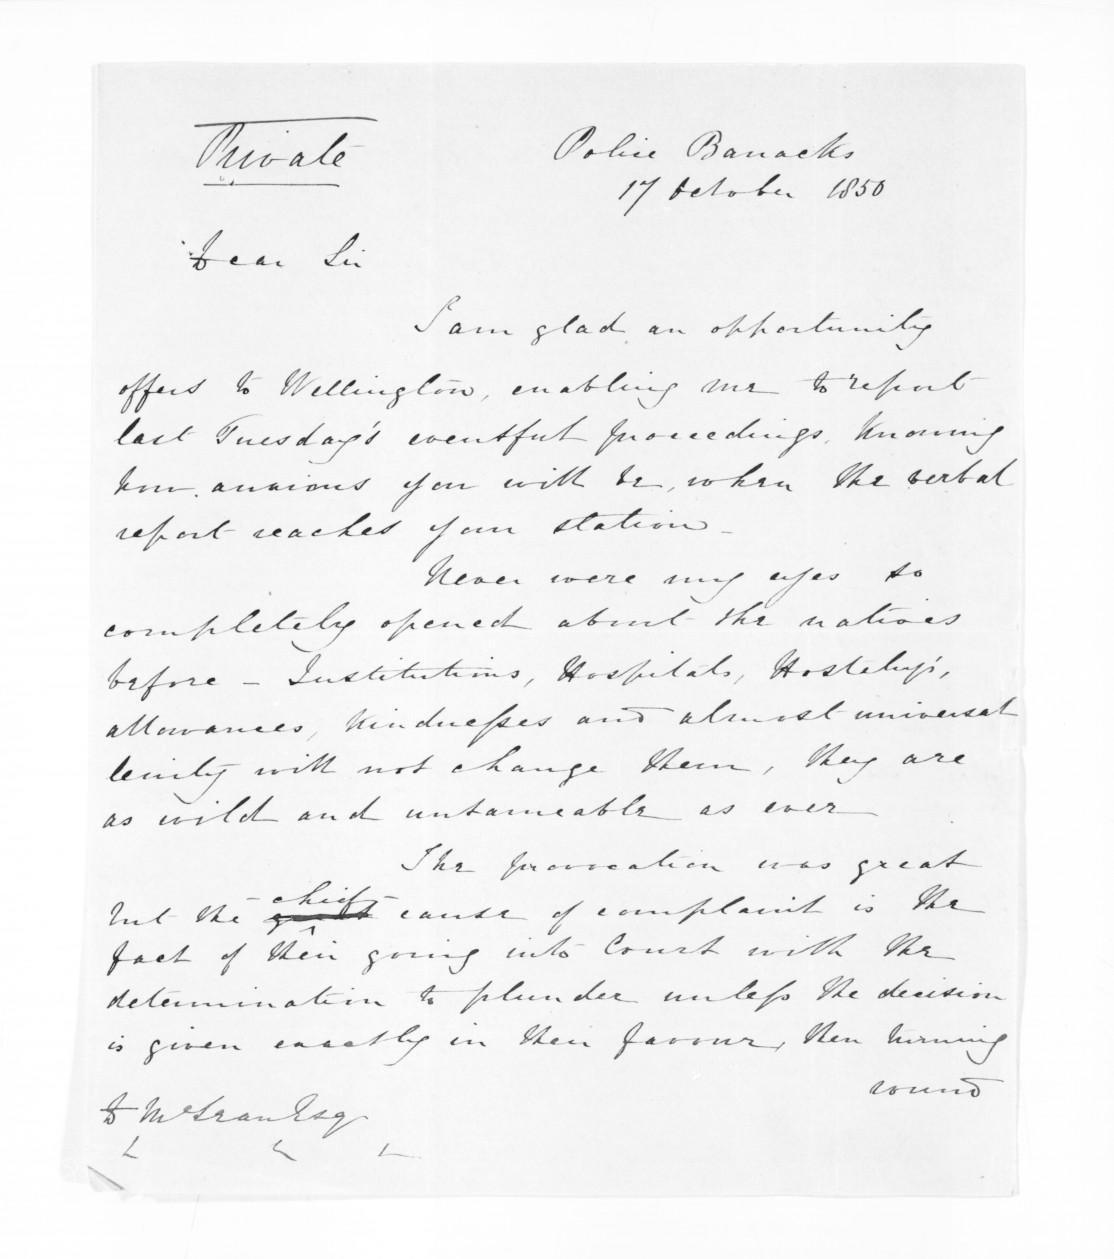 Private
Police Barracks
17 October 1850
Dear Sir
I am glad an opportunity
offers to Wellington, enabling me to report
last Tuesday's eventful proceedings, Knowing
how anxious you will be, when the verbal
report reaches your station -
Never were my eyes so
completely opened about the natives
before - Institutions, Hospitals, Hostelry's,
allowances, kindnesses and almost universal
lenity will not change them, they are
as wild and untameable as ever
The provocation was great
but the chief cause of complaint is the
fact of their going into Court with the
determination to plunder unless the decision
is given exactly in their favour, then turning
round
D McLean Esq